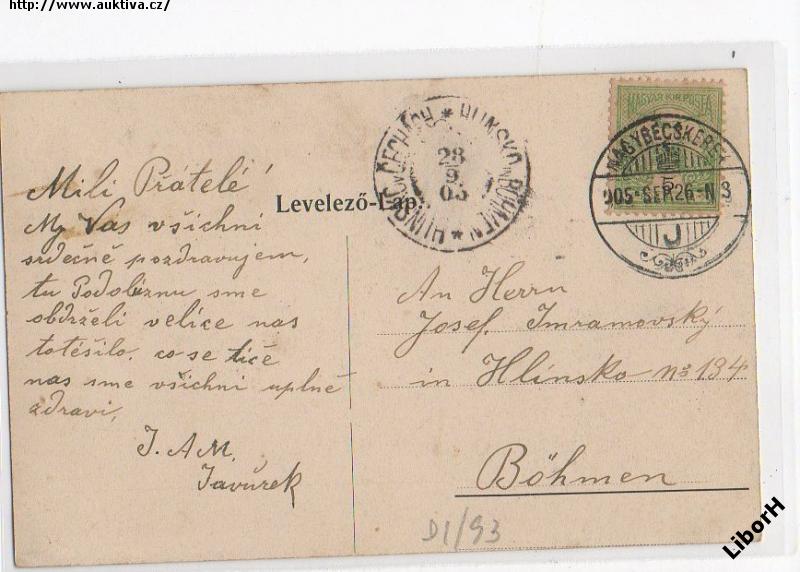 http://www.auktiva.cz/
Mili Přátelé!
My Vas všichni
srdečně pozdravujem,
tu Podobiznu sme
obdrželi velice nas
totěšilo, co se tiče
nas sme všichni uplně
zdravi,
J. A M.
Javůrek
Levelező-Lap.
HLINSKO IN BÖHMEN * HLINSKO V ČECHÁCH *
28
9
05
MAGYAR KIR. POSTA
NAGYBECSKEREK
905 SEP 26 - N 3
J
An Herrn
Josef Imramovský
in Hlinsko No 194
Böhmen
D1/93
LiborH